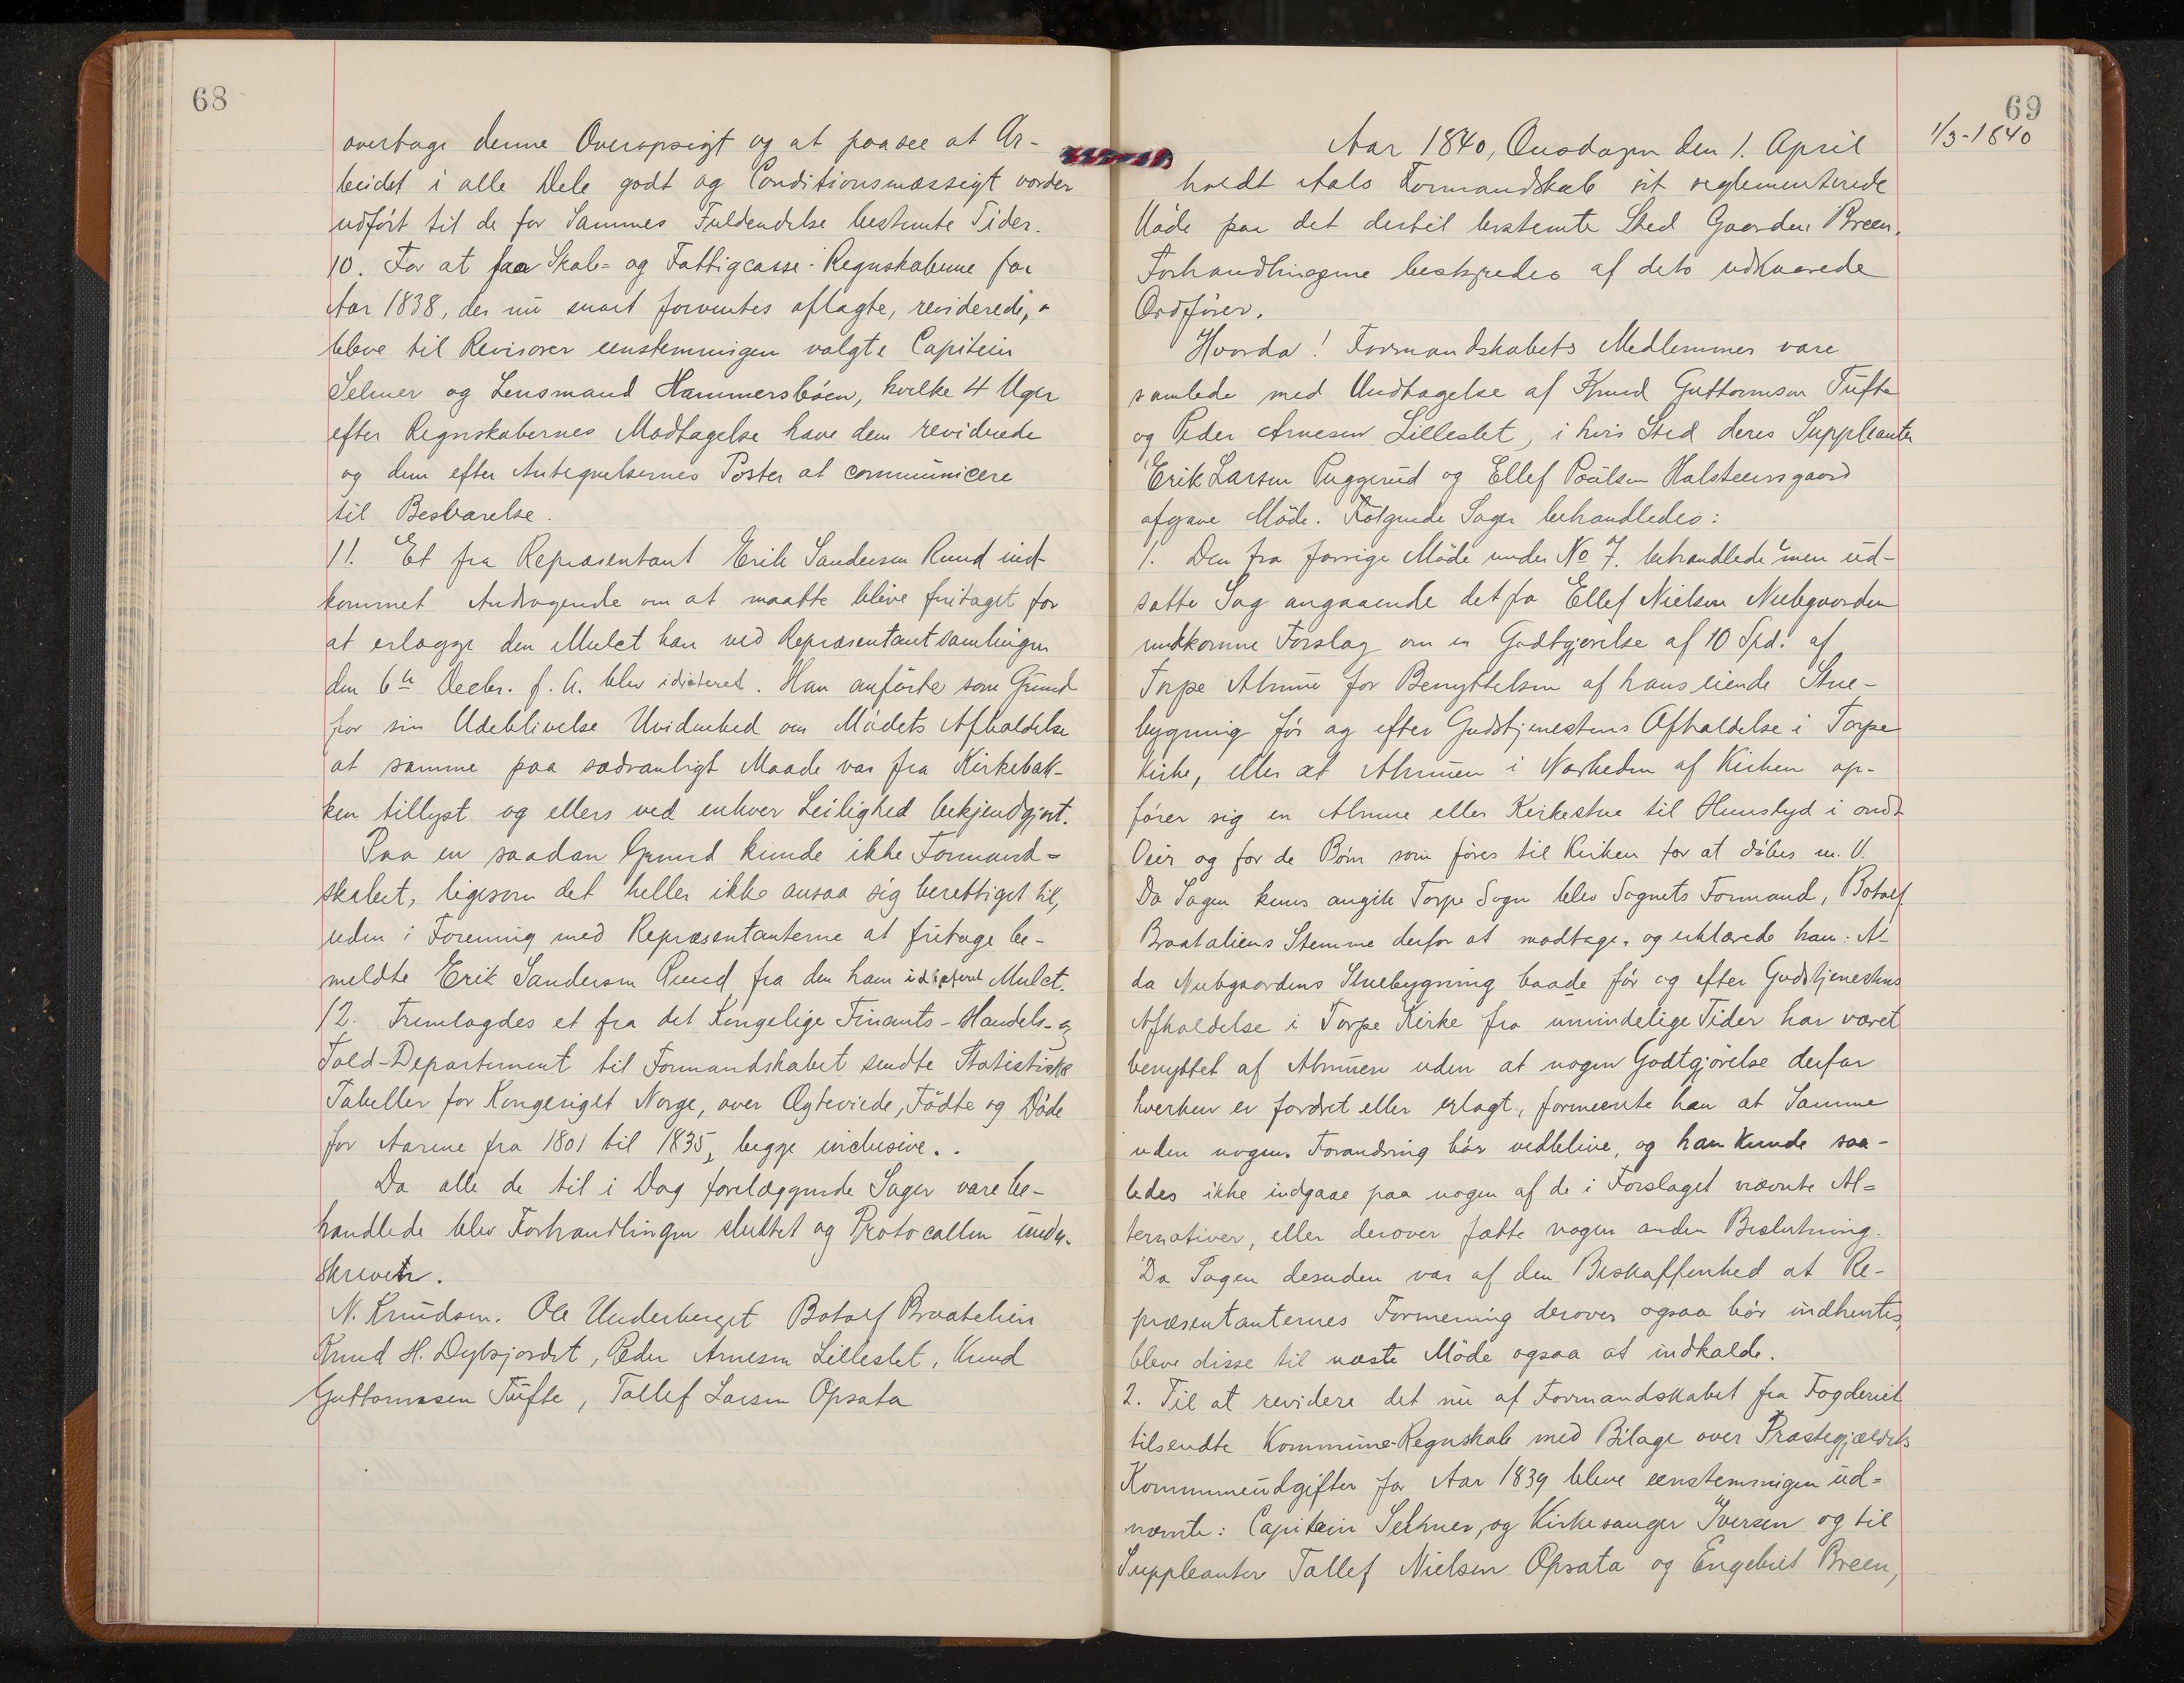 68
overtage denne Overopsigt og at paasee at Ar-
beidet i alle Dele godt og Conditionsmæssigt vorder
udført til de for Sammes Fuldendelse bestemte Tider.
10. For at faa Skole- og Fattigcasse-Regnskaberne for
Aar 1838, der nu snart forventes aflagte, reviderede,
bleve til Revisorer eenstemmigen valgte Capitein
Selmer og Lensmand Hammersbøen, hvilke 4 Uger
efter Regnskabernes Modtagelse have dem reviderede
og dem efter Antegnelsernes Poster at communicere
til Besvarelse.
11. Et fra Repræsentant Erik Sandersen Ruud ind-
kommet Andragende om at maatte blive fritaget for
at erlægge den Mulct han ved Repræsentantsamlingen
den 6te Decbr. f. A. blev idicteret. Han anførte som Grund
for sin Udeblivelse Uvidenhed om Mødets Afholdelse
at samme paa sædvanligt Maade var fra Kirkebak-
ken tillyst og ellers ved enhver Leilighed bekjendtgjort.
Paa en saadan Grund kunde ikke Formand-
skabet, ligesom det heller ikke ansaa sig berettiget til,
uden i Forening med Repræsentanterne at fritage be-
meldte Erik Sandersen Ruud fra den ham idicterede Mulct.
12. Fremlagdes et fra det Kongelige Finants- Handels- og
Told-Departement til Formandskabet sendte Statistiske
Tabeller for Kongeriget Norge, over Ægteviede, Fødte og Døde
for Aarene fra 1801 til 1835, begge inclusive.
Da alle de til i Dag foreliggende Sager vare be-
handlede blev Forhandlingen sluttet og Protocollen under-
skreven.
N. Knudsen. Ole Underberget Botolf Braatelien
Knud H. Dybsjordet, Peder Arnesen Lilleslet, Knud
Guttormsen Tufte, Tollef Larsen Opsata
69
1/3-1840
Aar 1840, Onsdagen den 1. April
holdt Aals Formandskab sit reglementerede
Møde paa det dertil bestemte Sted Gaarden Breen.
Forhandlingerne bestyredes af dets udkaarede
Ordfører.
Hvorda! Formandskabets Medlemmer vare
samlede med Undtagelse af Knud Guttormsen Tufte
og Peder Arnesen Lilleslet, i hvis Sted deres Suppleanter
Erik Larsen Puggerud og Ellef Poulsen Halsteensgaard
afgave Møde. Følgende Sager behandledes:
1. Den fra forrige Møde under No 7. behandlede men ud-
satte Sag angaaende det fra Ellef Nielsen Nubgaarden
indkomne Forslag om en Godtgjørelse af 10 Spd. af
Torpe Almue for Benyttelsen af hans eiende Stue-
bygning før og efter Gudstjenestens Afholdelse i Torpe
Kirke, eller at Almuen i Nærheden af Kirken op-
fører sig en Almue eller Kirkestue til Huuslyd i ondt
Veir og for de Børn som føres til Kirken for at døbes m. V.
Da Sagen kuns angik Torpe Sogn blev Sognets Formand, Botolf
Braataliens Stemme derfor at modtage, og erklærede han: At
da Nubgaardens Stuebygning baade før og efter Gudstjenestens
Afholdelse i Torpe Kirke fra umindelige Tider har været
benyttet af Almuen uden at nogen Godtgjørelse derfor
hverken er fordret eller erlagt, formeente han at Samme
uden nogen Forandring bør vedblive, og han kunde saa-
ledes ikke indgaae paa nogen af de i Forslaget nævnte Al-
ternativer, eller derover fatte nogen anden Beslutning.
Da Sagen desuden var af den Beskaffenhed at Re-
præsentanternes Formening derover ogsaa bør indhentes,
bleve disse til næste Møde ogsaa at indkalde.
2. Til at revidere det nu af Formandskabet fra Fogderiet
tilsendte Kommune-Regnskab med Bilage over Præstegjældets
Kommuneudgifter for Aar 1839 bleve eenstemmigen ud-
nævnte: Capitein Selmer, og Kirkesanger Iversen og til
Suppleanter Tollef Nielsen Opsata og Engebret Breen,